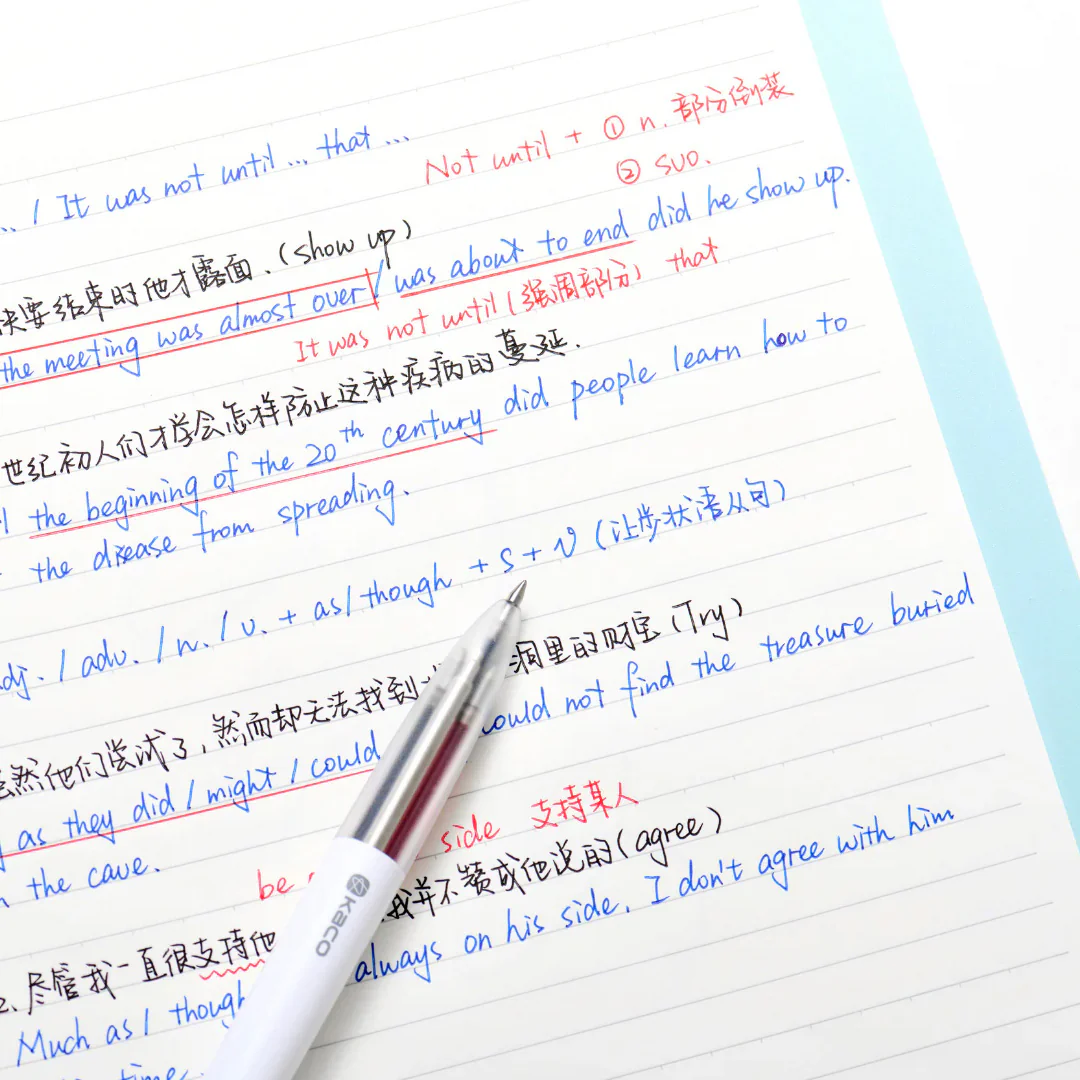 ... / It was not until ... that ...
Not until + ① n. 部分倒装
② svo.
快要结束时他才露面.(show up)
the meeting was almost over / was about to end did he show up.
It was not until (强调部分) that
世纪初人们才学会怎样防止这种疾病的蔓延.
the beginning of the 20th century did people learn how to
the disease from spreading.
adj. / adv. / n. / v. + as / though + s + v (让步状语从句)
然他们尝试了,然而却无法找到 洞里的财宝 (Try)
as they did / might / could could not find the treasure buried
the cave.
be side 支持某人
2. 尽管我一直很支持他 我并不赞成他说的 (agree)
Much as / though always on his side, I don't agree with him
time.
kaco